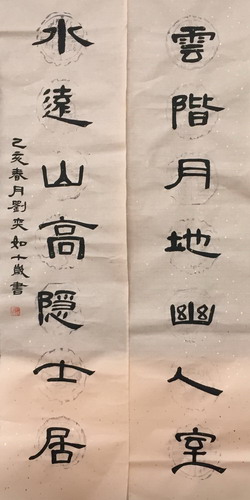 雲階月地幽人室
水遠山高隐士居
乙亥春月劉奕如十歲書